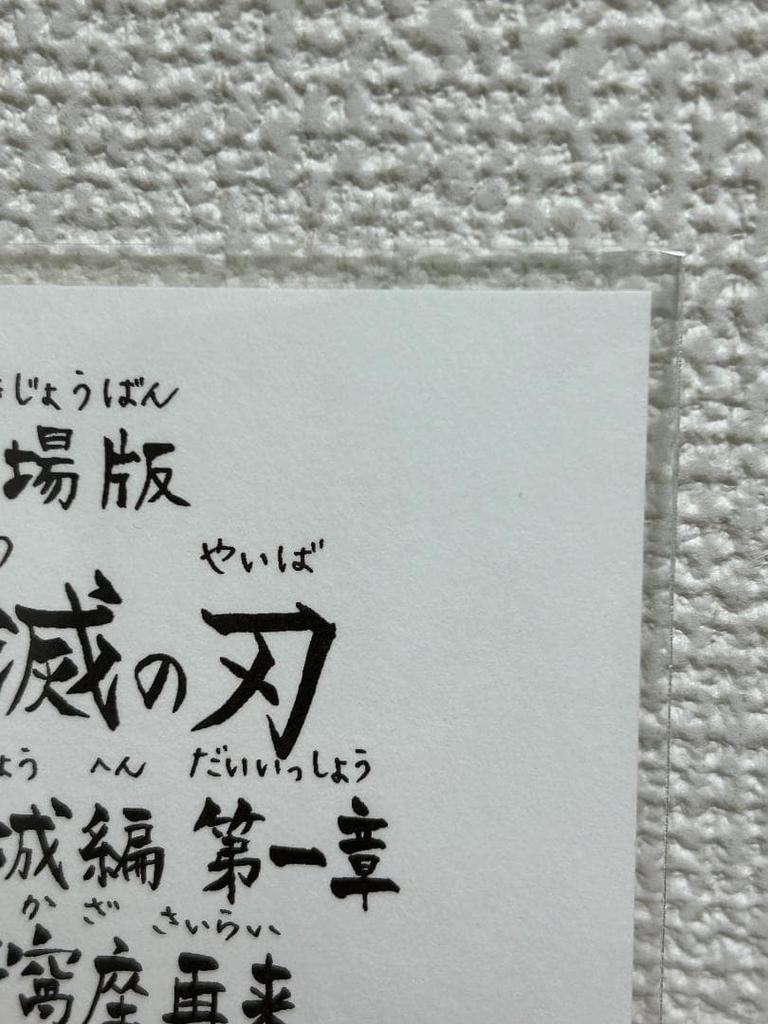 じょうばん
場版
やいば
滅の刃
ょう へん だいいっしょう
城編 第一章
かざ さいらい
窩座再来